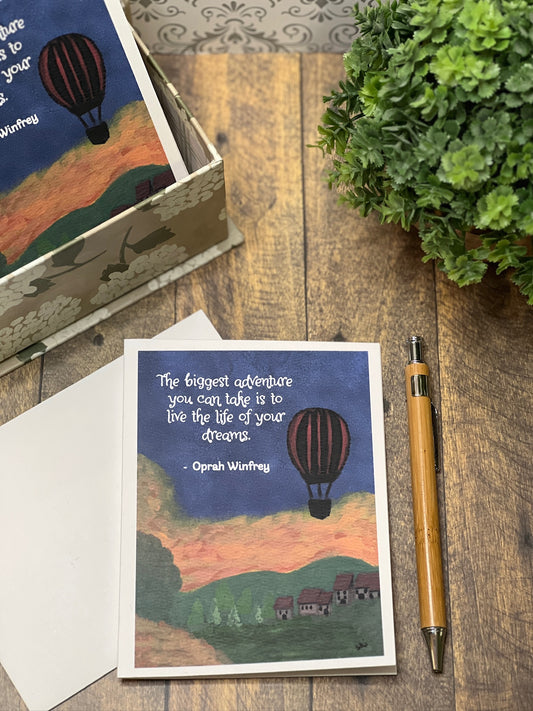 nture
s to
your
s.
Winfrey
The biggest adventure
you can take is to
live the life of your
dreams.
- Oprah Winfrey